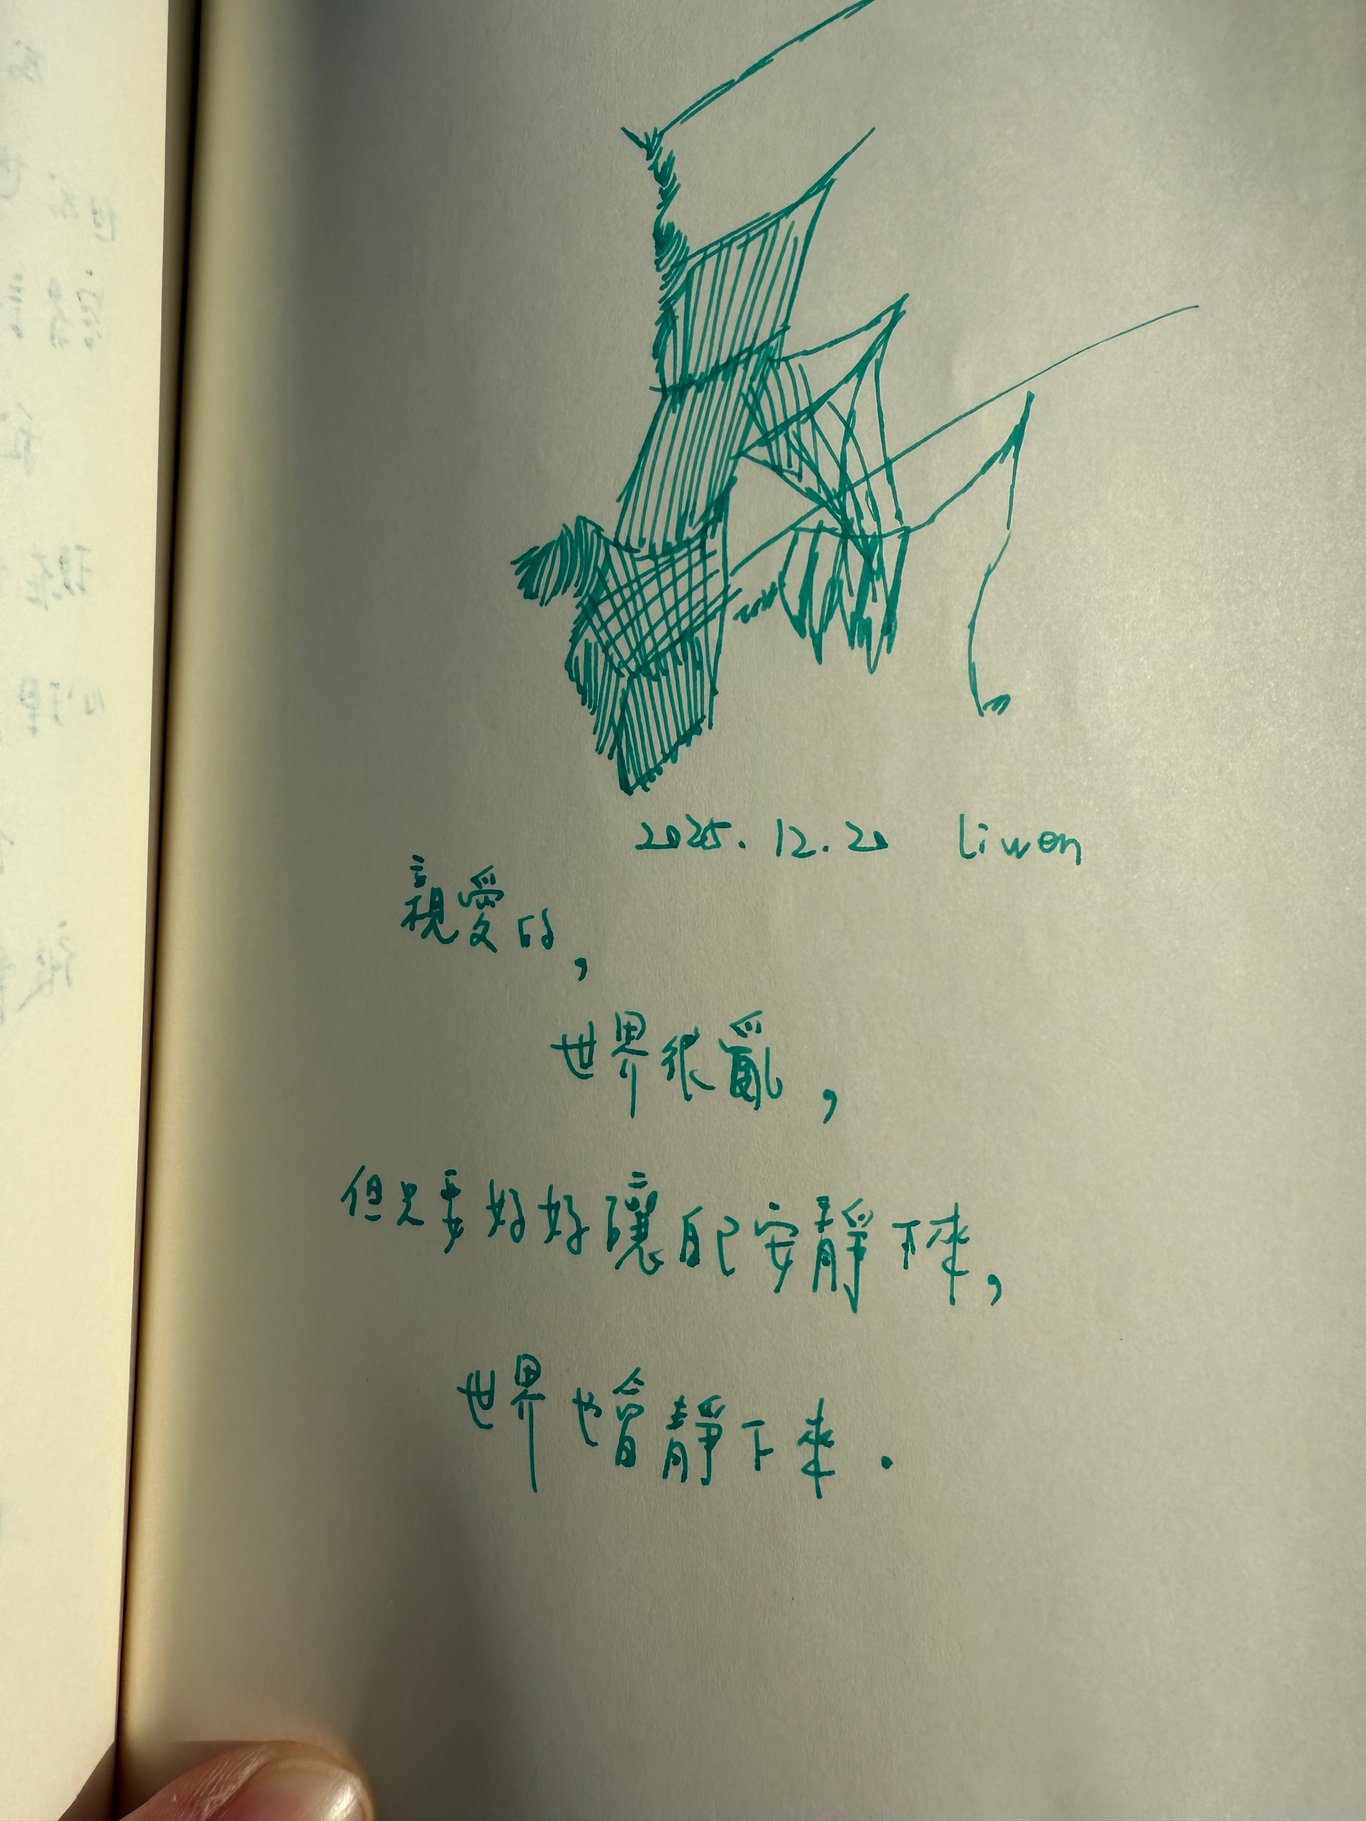 2025.12.20 Liwen
親愛的,
世界很亂,
但只要好好讓自己安靜下來,
世界也會靜下來.